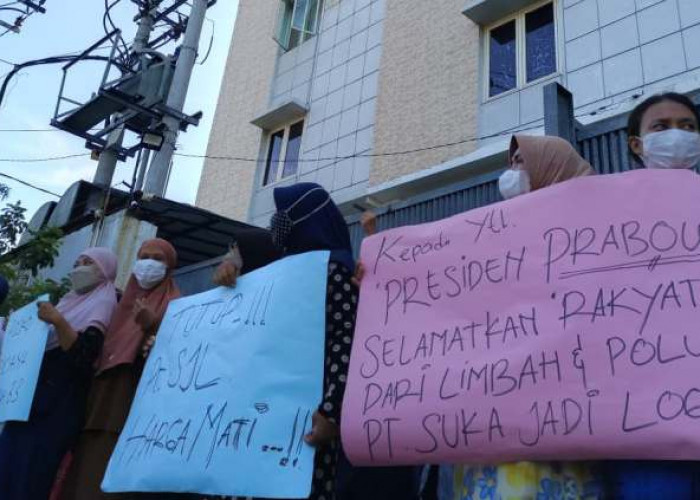 TUTUP...!!!
PT SJL
HARGA MATI...!!
Kepada Ytl.
PRESIDEN PRABOW
SELAMATKAN RAKYAT
DARI LIMBAH & POLU
PT. SUKA JADI LOG